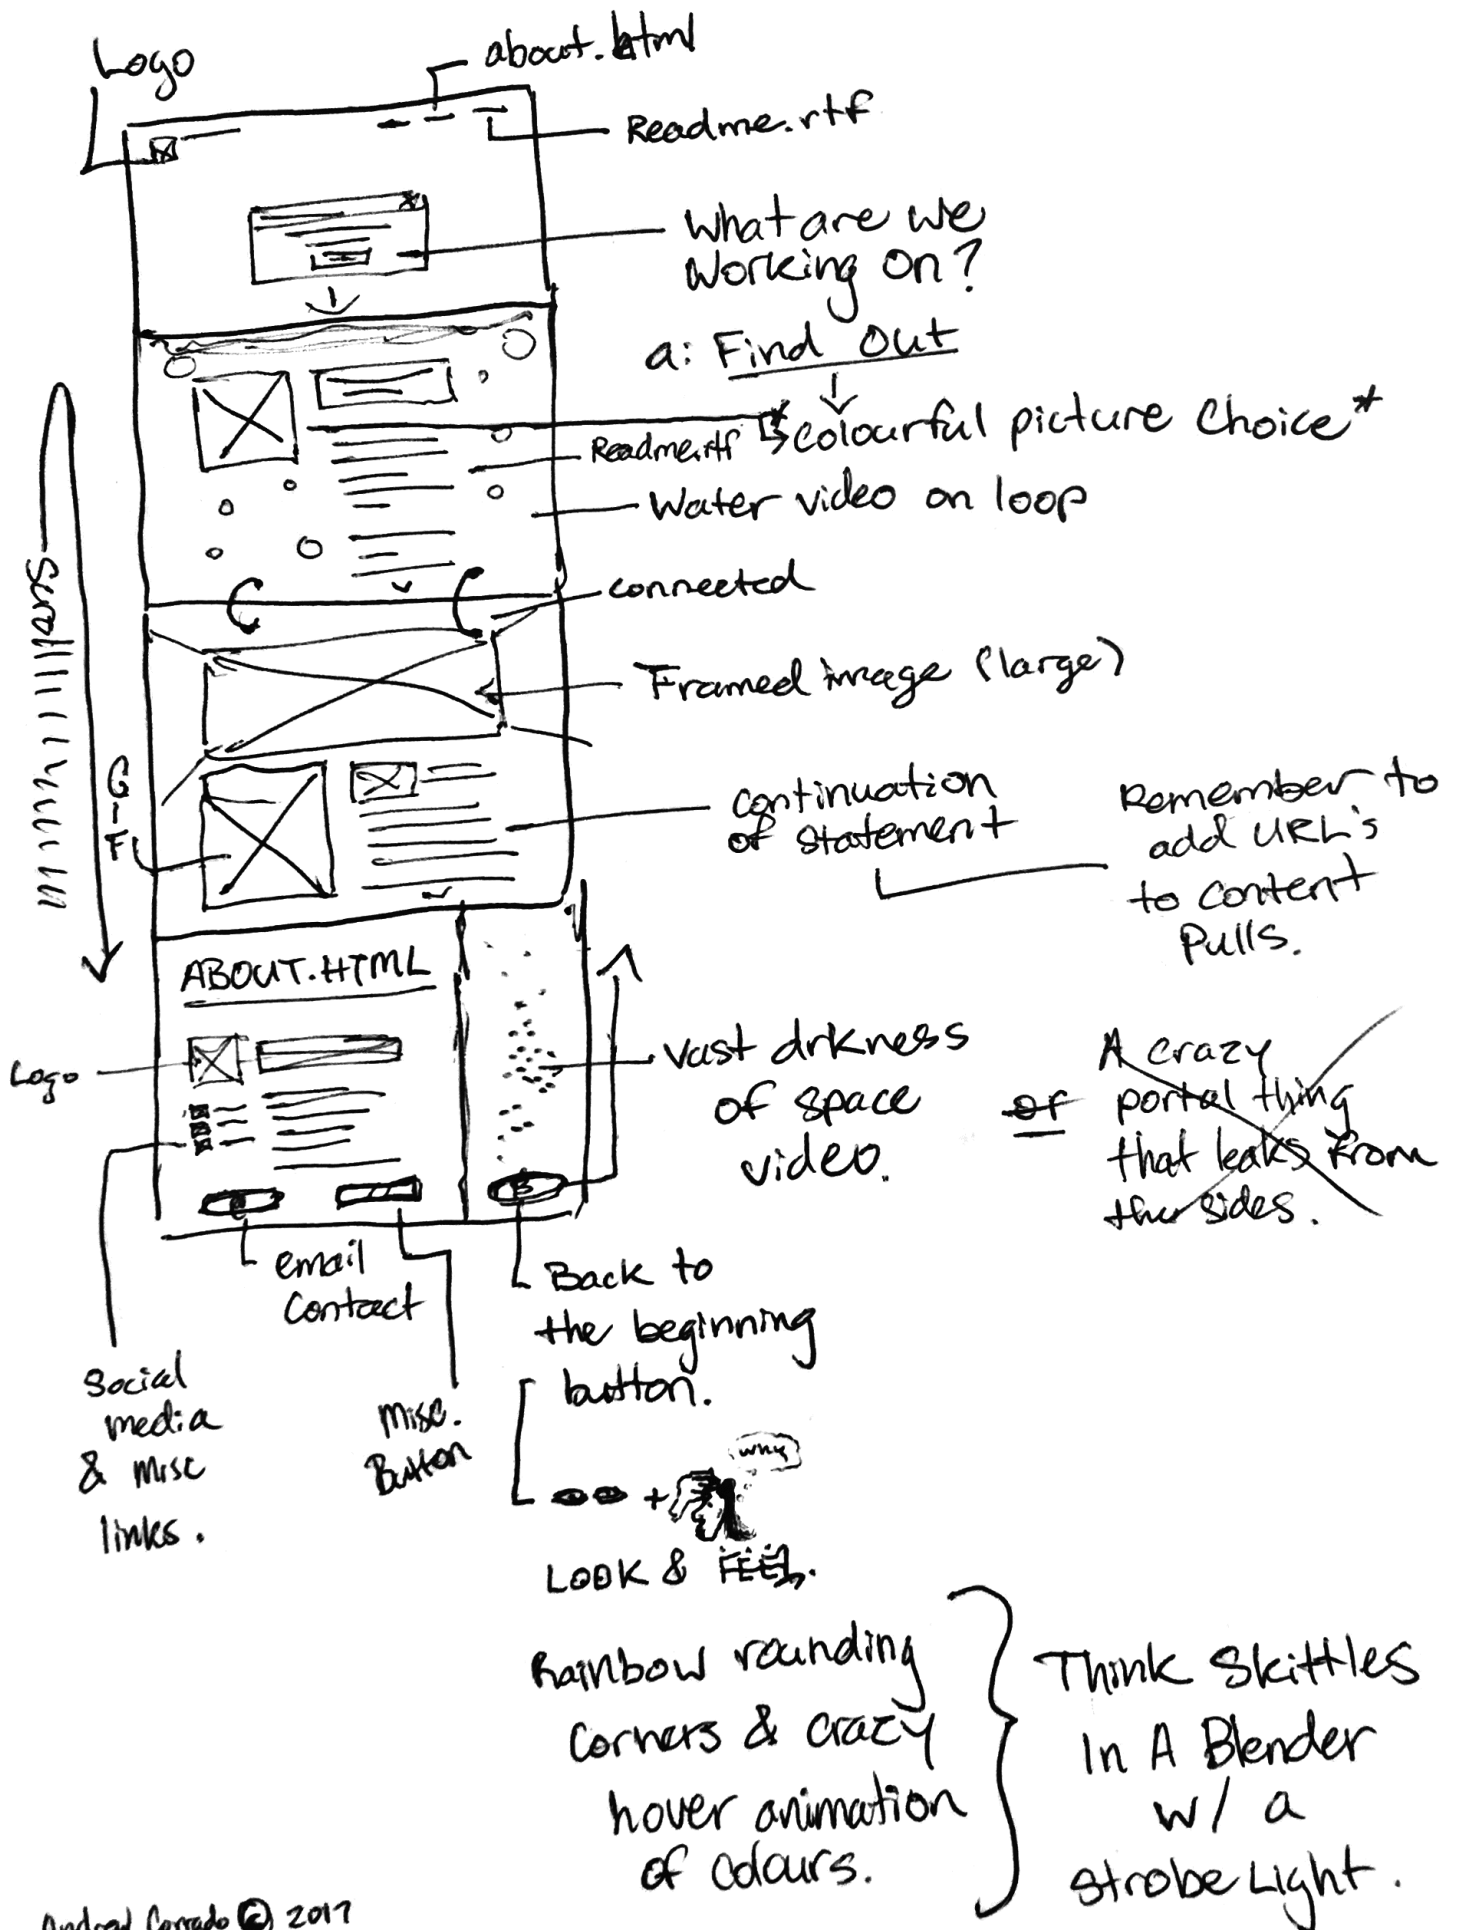 Logo
about.html
Readme.rtf
What are we
working on?
a: Find Out
Colourful picture choice*
Readme.rtf
Water video on loop
connected
Scrollllllllllllll
Framed image (large)
G
F
continuation
of statement
Remember to
add URL's
to content
pulls.
ABOUT.HTML
Logo
Vast drkness
of space
video.
or
A crazy
portal thing
that leaks from
the sides.
B
email
contact
Back to
the beginning
button.
Social
media
& misc
links.
Misc.
Button
why
+
LOOK & FEEL.
Rainbow rounding
corners & crazy
hover animation
of colours.
Think Skittles
In A Blender
w/ a
Strobe Light.
Corrado © 2017